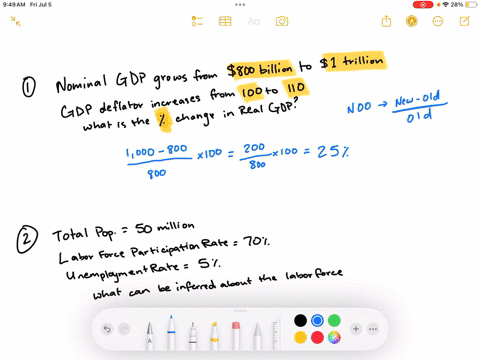 9:49 AM Fri Jul 5
28%
① Nominal GDP grows from $800 billion to $1 trillion
GDP deflator increases from 100 to 110
what is the % change in Real GDP?
NOO → New-old
old
1,000 - 800
800
×100 = 200
800
×100 = 25%
② Total Pop. = 50 million
Labor Force Participation Rate = 70%.
Unemployment Rate = 5%.
what can be inferred about the labor force